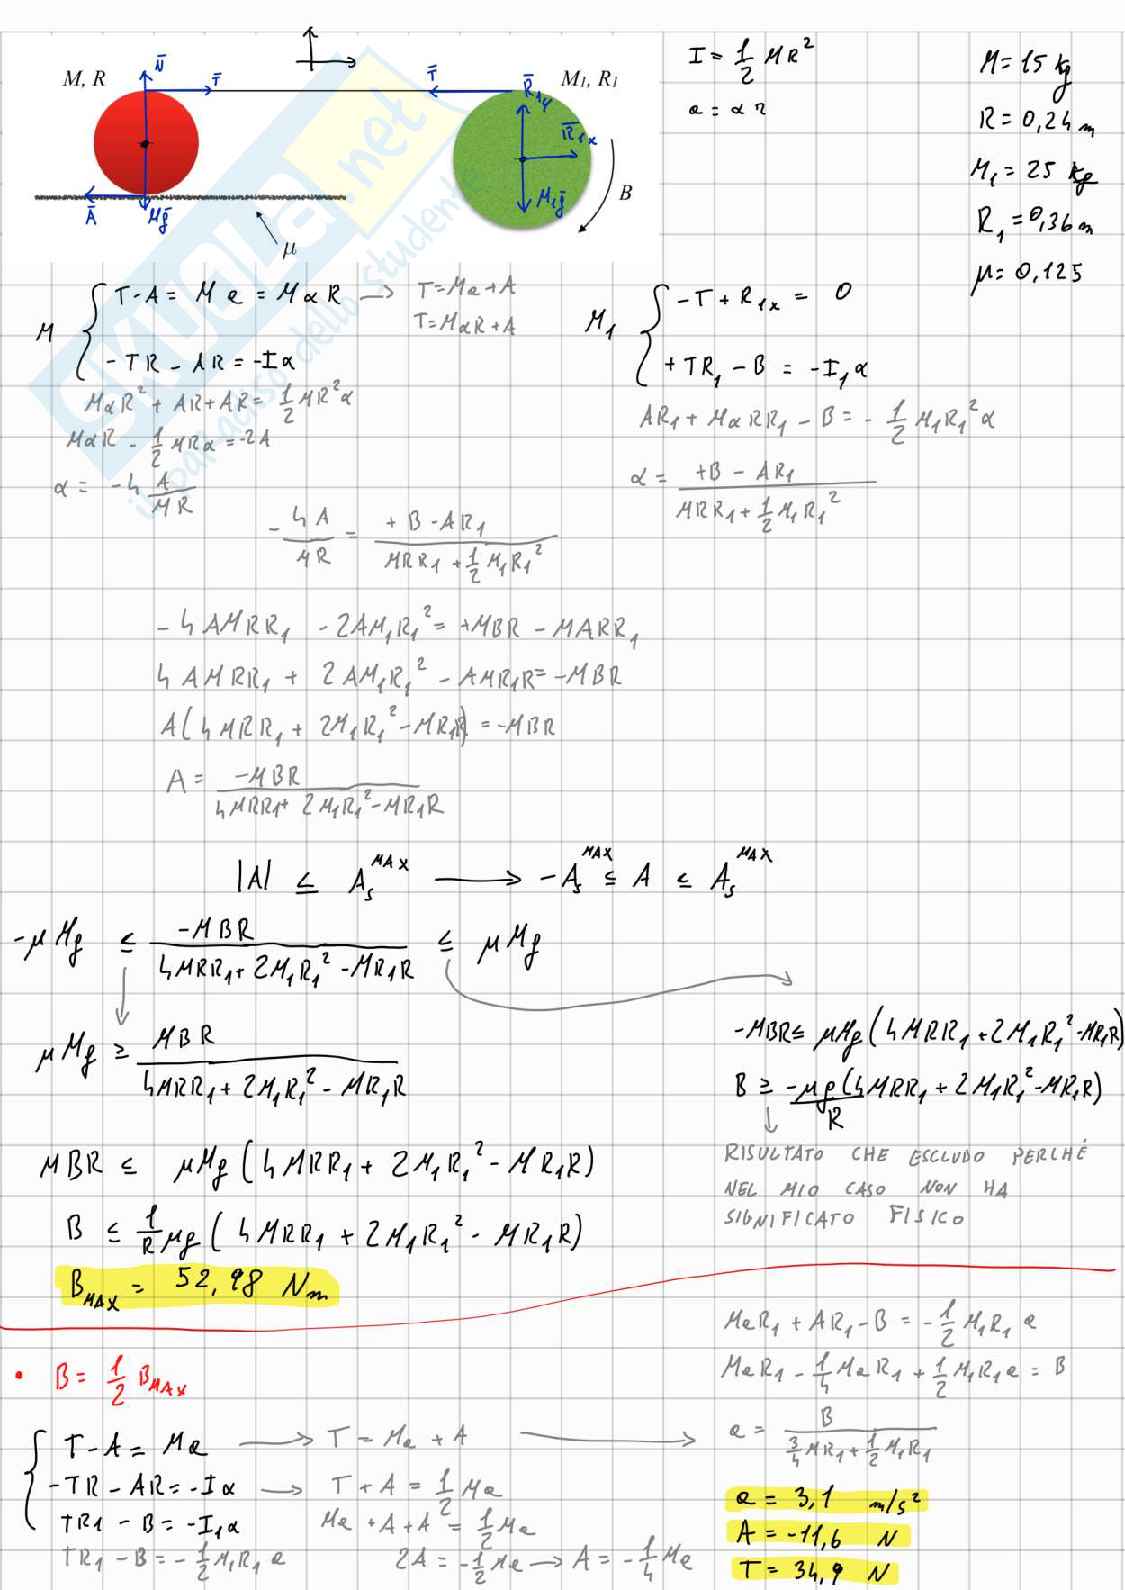 I = 1/2 MR²
a = αr
M = 15 kg
R = 0,24 m
M₁ = 25 kg
R₁ = 0,36 m
μ = 0,125
M, R
N̄
T̄
T̄
R̄₁y
M₁, R₁
R̄₁x
M₁ḡ
B
Ā
Mḡ
μ
SKUOLA.net
M { T-A = Ma = MαR → T = Ma + A
T = MαR + A
-TR - AR = -Iα
MαR² + AR + AR = 1/2 MR²α
MαR - 1/2 MRα = -2A
α = -4 A/MR
M₁ { -T + R₁x = 0
+TR₁ - B = -I₁α
AR₁ + MαRR₁ - B = - 1/2 M₁R₁²α
α = (+B - AR₁)/(MRR₁ + 1/2 M₁R₁²)
- 4A/MR = (+B - AR₁)/(MRR₁ + 1/2 M₁R₁²)
-4AMRR₁ - 2AM₁R₁² = +MBR - MARR₁
4AMRR₁ + 2AM₁R₁² - AMR₁R = -MBR
A(4MRR₁ + 2M₁R₁² - MR₁R) = -MBR
A = -MBR/(4MRR₁ + 2M₁R₁² - MR₁R)
|A| ≤ Aₛ^MAX → -Aₛ^MAX ≤ A ≤ Aₛ^MAX
-μMg ≤ -MBR/(4MRR₁ + 2M₁R₁² - MR₁R) ≤ μMg
μMg ≥ MBR/(4MRR₁ + 2M₁R₁² - MR₁R)
MBR ≤ μMg(4MRR₁ + 2M₁R₁² - MR₁R)
B ≤ 1/R μg(4MRR₁ + 2M₁R₁² - MR₁R)
B_MAX = 52,98 Nm
-MBR ≤ μMg(4MRR₁ + 2M₁R₁² - MR₁R)
B ≥ -μg/R (4MRR₁ + 2M₁R₁² - MR₁R)
RISULTATO CHE ESCLUDO PERCHÉ
NEL MIO CASO NON HA
SIGNIFICATO FISICO
• B = 1/2 B_MAX
T-A = Ma → T = Ma + A →
-TR - AR = -Iα → T + A = 1/2 Ma
TR₁ - B = -I₁α
Ma + A + A = 1/2 Ma
TR₁ - B = - 1/2 M₁R₁a
2A = - 1/2 Ma → A = - 1/4 Ma
MaR₁ + AR₁ - B = - 1/2 M₁R₁a
MaR₁ - 1/4 MaR₁ + 1/2 M₁R₁a = B
a = B/(3/4 MR₁ + 1/2 M₁R₁)
a = 3,1 m/s²
A = -11,6 N
T = 34,9 N